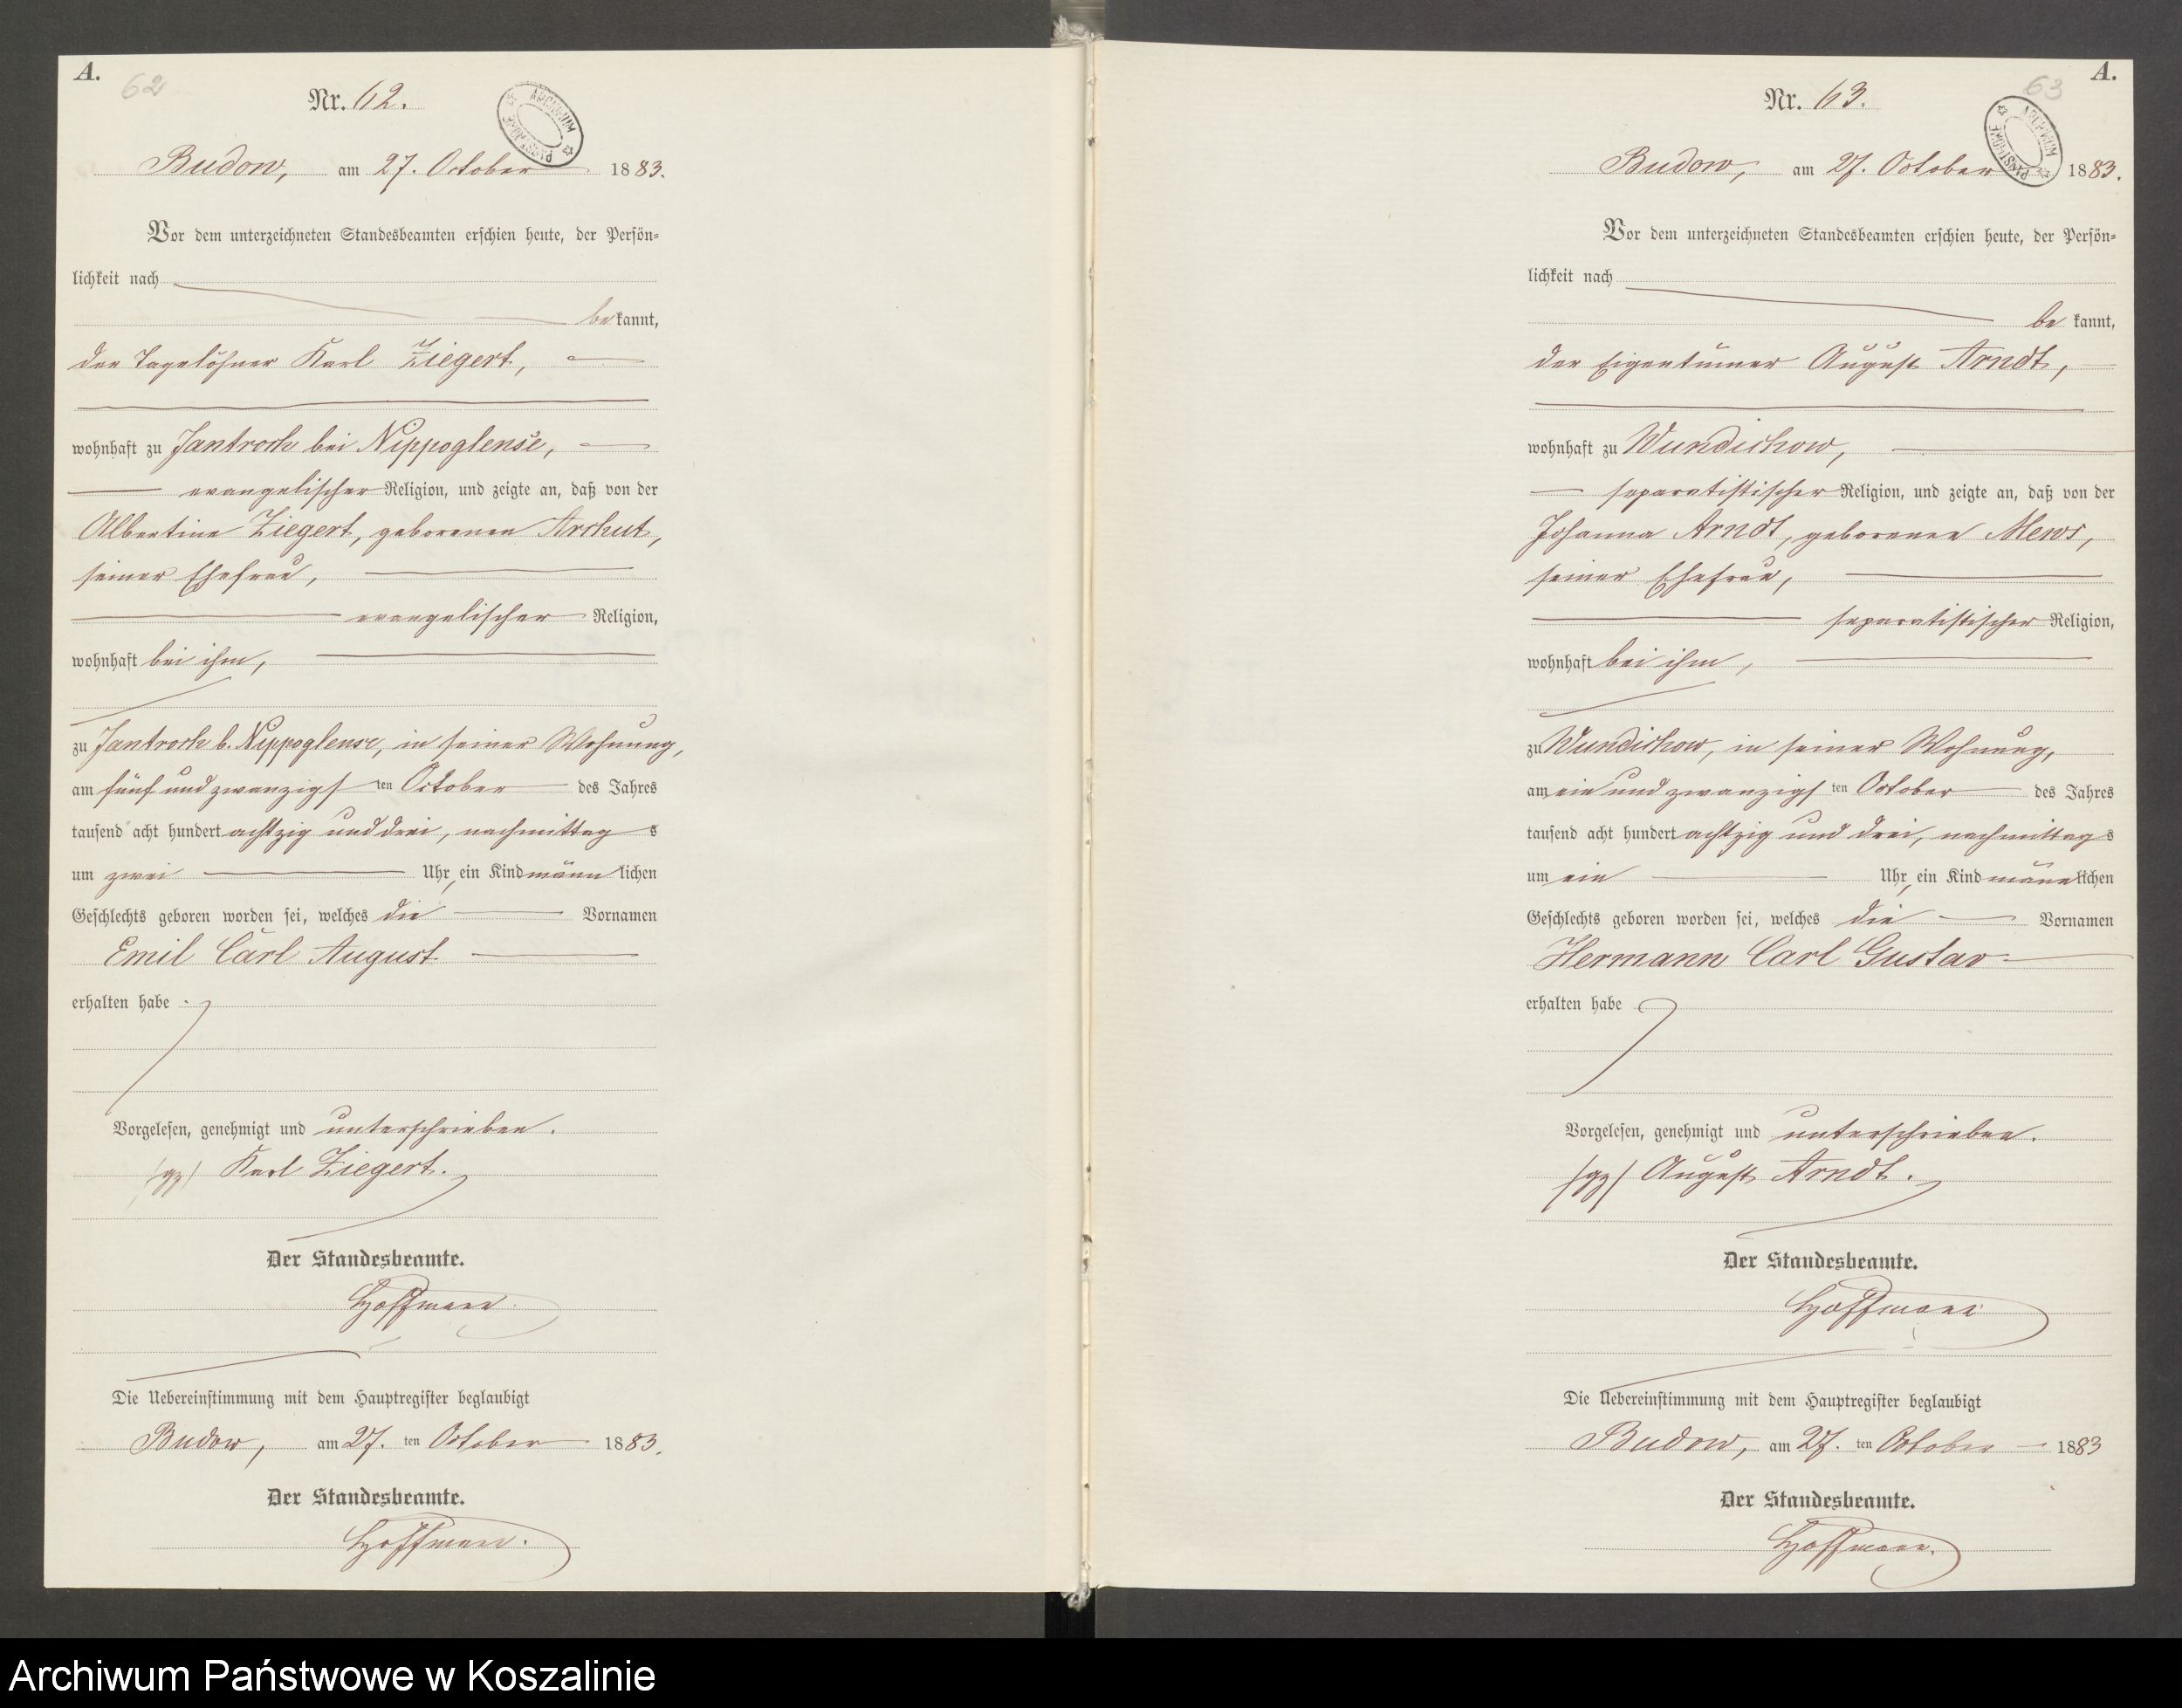 A.
62
Nr. 62.
ARCHIWUM PAŃSTWOWE
Budow, am 27. October 1883.
Vor dem unterzeichneten Standesbeamten erschien heute, der Persön-
lichkeit nach
bekannt,
der Tagelöhner Karl Ziegert,
wohnhaft zu Jantrock bei Nippoglense,
evangelischer Religion, und zeigte an, daß von der
Albertine Ziegert, geborenen Archut,
seiner Ehefrau,
evangelischer Religion,
wohnhaft bei ihm,
zu Jantrock b. Nippoglense, in seiner Wohnung,
am fünf und zwanzigsten October des Jahres
tausend acht hundert achtzig und drei, nachmittags
um zwei Uhr, ein Kind männlichen
Geschlechts geboren worden sei, welches die Vornamen
Emil Carl August
erhalten habe.
Vorgelesen, genehmigt und unterschrieben.
(gz) Karl Ziegert.
Der Standesbeamte.
Hoffmann.
Die Uebereinstimmung mit dem Hauptregister beglaubigt
Budow, am 27. ten October 1883.
Der Standesbeamte.
Hoffmann.
A.
63
Nr. 63.
ARCHIWUM PAŃSTWOWE
Budow, am 27. October 1883.
Vor dem unterzeichneten Standesbeamten erschien heute, der Persön-
lichkeit nach
bekannt,
der Eigentümer August Arndt,
wohnhaft zu Wundichow,
separatistischer Religion, und zeigte an, daß von der
Johanna Arndt, geborenen Mews,
seiner Ehefrau,
separatistischer Religion,
wohnhaft bei ihm,
zu Wundichow, in seiner Wohnung,
am ein und zwanzigsten October des Jahres
tausend acht hundert achtzig und drei, nachmittags
um ein Uhr, ein Kind männlichen
Geschlechts geboren worden sei, welches die Vornamen
Hermann Carl Gustav
erhalten habe
Vorgelesen, genehmigt und unterschrieben.
(gz) August Arndt.
Der Standesbeamte.
Hoffmann
Die Uebereinstimmung mit dem Hauptregister beglaubigt
Budow, am 27. ten October 1883
Der Standesbeamte.
Hoffmann.
Archiwum Państwowe w Koszalinie